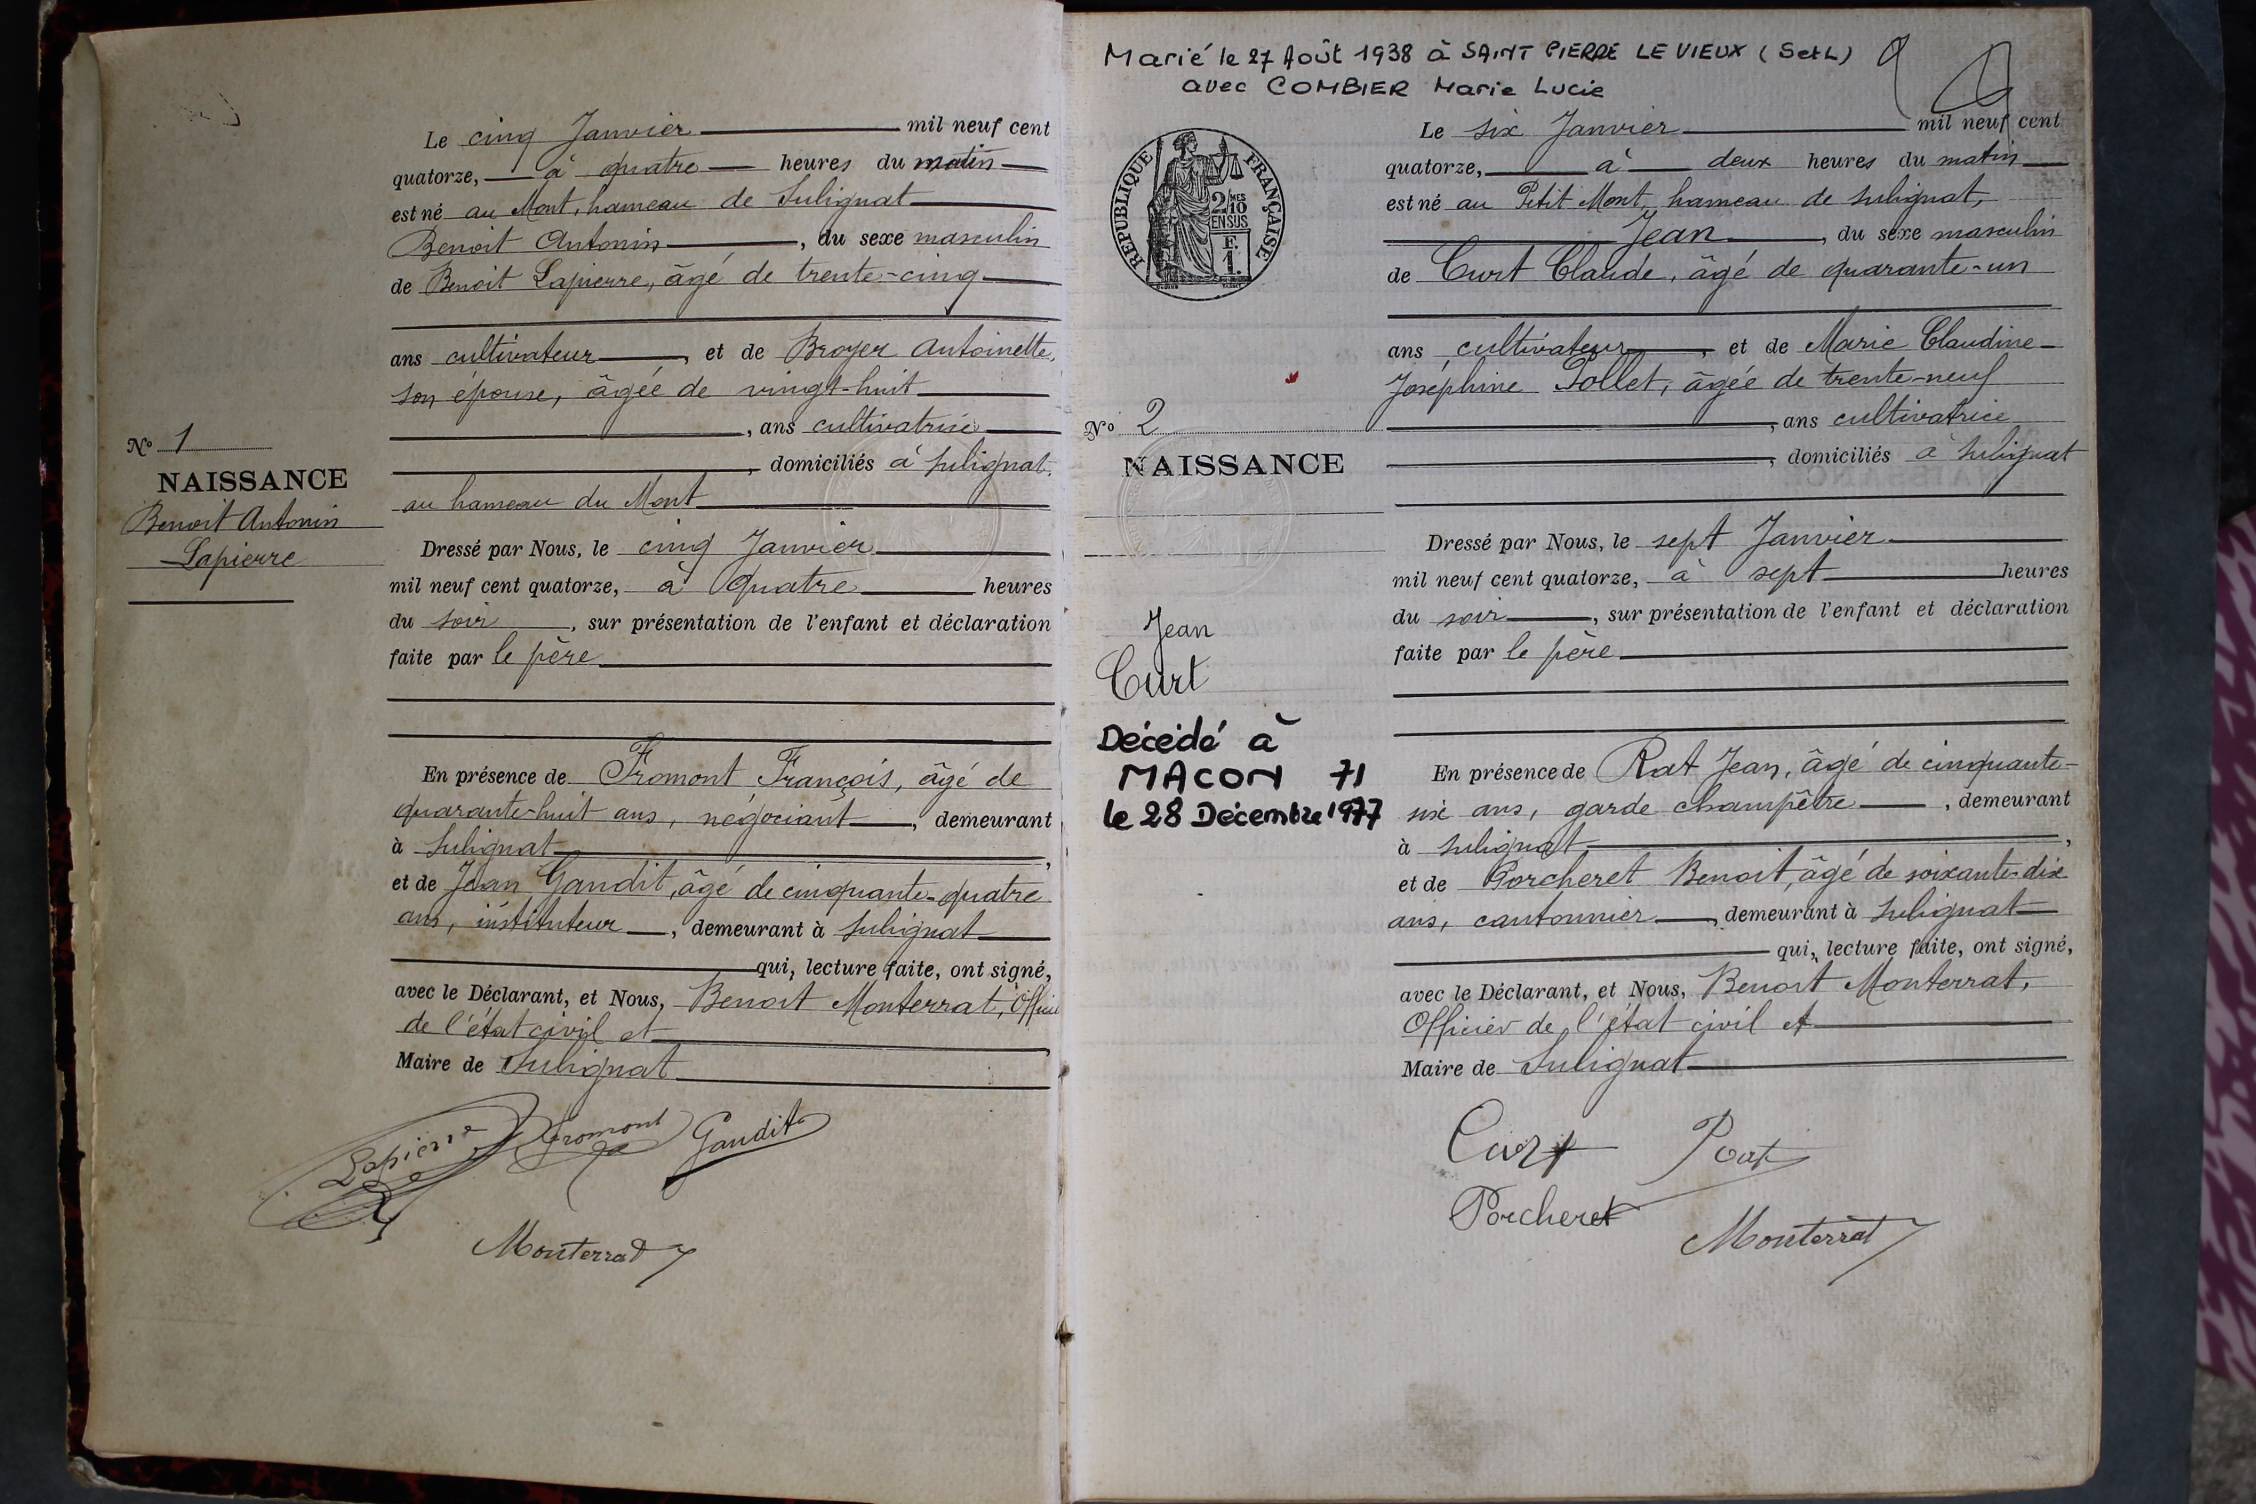 Le cinq Janvier mil neuf cent
quatorze, à quatre heures du matin
est né au Mont, hameau de Sulignat
Benoit Antonin, du sexe masculin
de Benoit Lapierre, âgé de trente-cinq
ans cultivateur, et de Broyer Antoinette,
son épouse, âgée de vingt-huit
, ans cultivatrice
, domiciliés à Sulignat,
au hameau du Mont
No 1
NAISSANCE
Benoit Antonin
Lapierre
Dressé par Nous, le cinq Janvier
mil neuf cent quatorze, à quatre heures
du soir, sur présentation de l'enfant et déclaration
faite par le père
En présence de Fromont François, âgé de
quarante-huit ans, négociant, demeurant
à Sulignat,
et de Jean Gaudit, âgé de cinquante-quatre
ans, instituteur, demeurant à Sulignat
qui, lecture faite, ont signé,
avec le Déclarant, et Nous, Benoit Monterrat, Officier
de l'état civil et
Maire de Sulignat
Lapierre Fromont Gaudit
Monterrat
Marié le 27 Août 1938 à SAINT PIERRE LE VIEUX (S et L)
avec COMBIER Marie Lucie
REPUBLIQUE FRANÇAISE
2/10 MES
EN SUS
F.
1.
Le six Janvier mil neuf cent
quatorze, à deux heures du matin
est né au Petit Mont, hameau de Sulignat,
Jean, du sexe masculin
de Curt Claude, âgé de quarante-un
ans cultivateur, et de Marie Claudine-
Joséphine Pollet, âgée de trente-neuf
, ans cultivatrice
, domiciliés à Sulignat
No 2
NAISSANCE
Jean
Curt
Décédé à
MACON 71
le 28 Décembre 1977
Dressé par Nous, le sept Janvier
mil neuf cent quatorze, à sept heures
du soir, sur présentation de l'enfant et déclaration
faite par le père
En présence de Rat Jean, âgé de cinquante-
six ans, garde champêtre, demeurant
à Sulignat,
et de Porcheret Benoit, âgé de soixante-dix
ans, cantonnier, demeurant à Sulignat
qui, lecture faite, ont signé,
avec le Déclarant, et Nous, Benoit Monterrat,
Officier de l'état civil et
Maire de Sulignat
Curt Rat
Porcheret
Monterrat